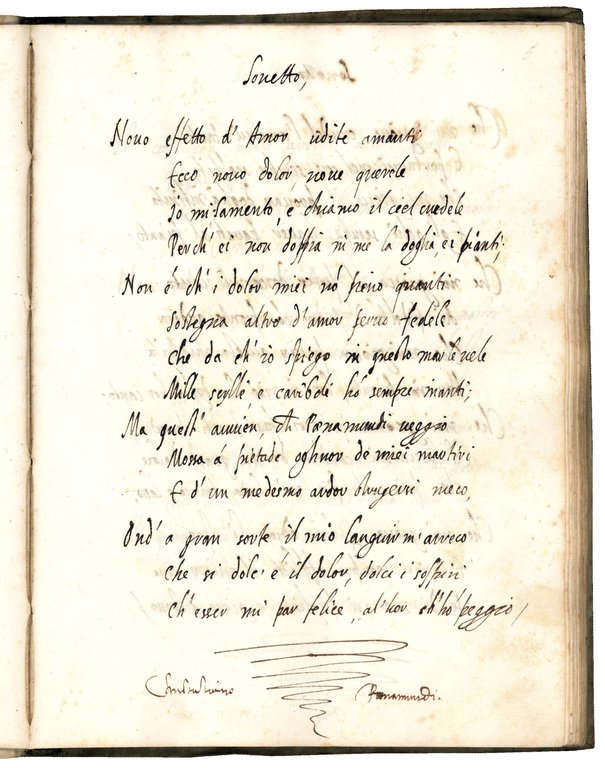 Sonetto,
Novo effetto d' Amor udite amanti
Ecco novo dolor, nove querele
Io mi lamento, e chiamo il ciel crudele
Perch' ei non doppia in me la doglia, e i pianti;
Non é ch' i dolor miei nō sieno quanti
Sostegna altro d' amor servo fedele
Che da ch' io spiego in questo mar le vele
Mille scylle e cariboli hó sempre inanti;
Ma quest' avvien, ch Pænamundi veggio
Mossa á pietade oghuor de miei martiri
E d' un medesmo ardor struggersi meco,
Ond' a gran sorte il mio languir m' arreco
Che si dolc' é il dolor, dolci i sospiri
Ch' esser mi par felice, al' hor ch' hó peggio /
Pænamundi.